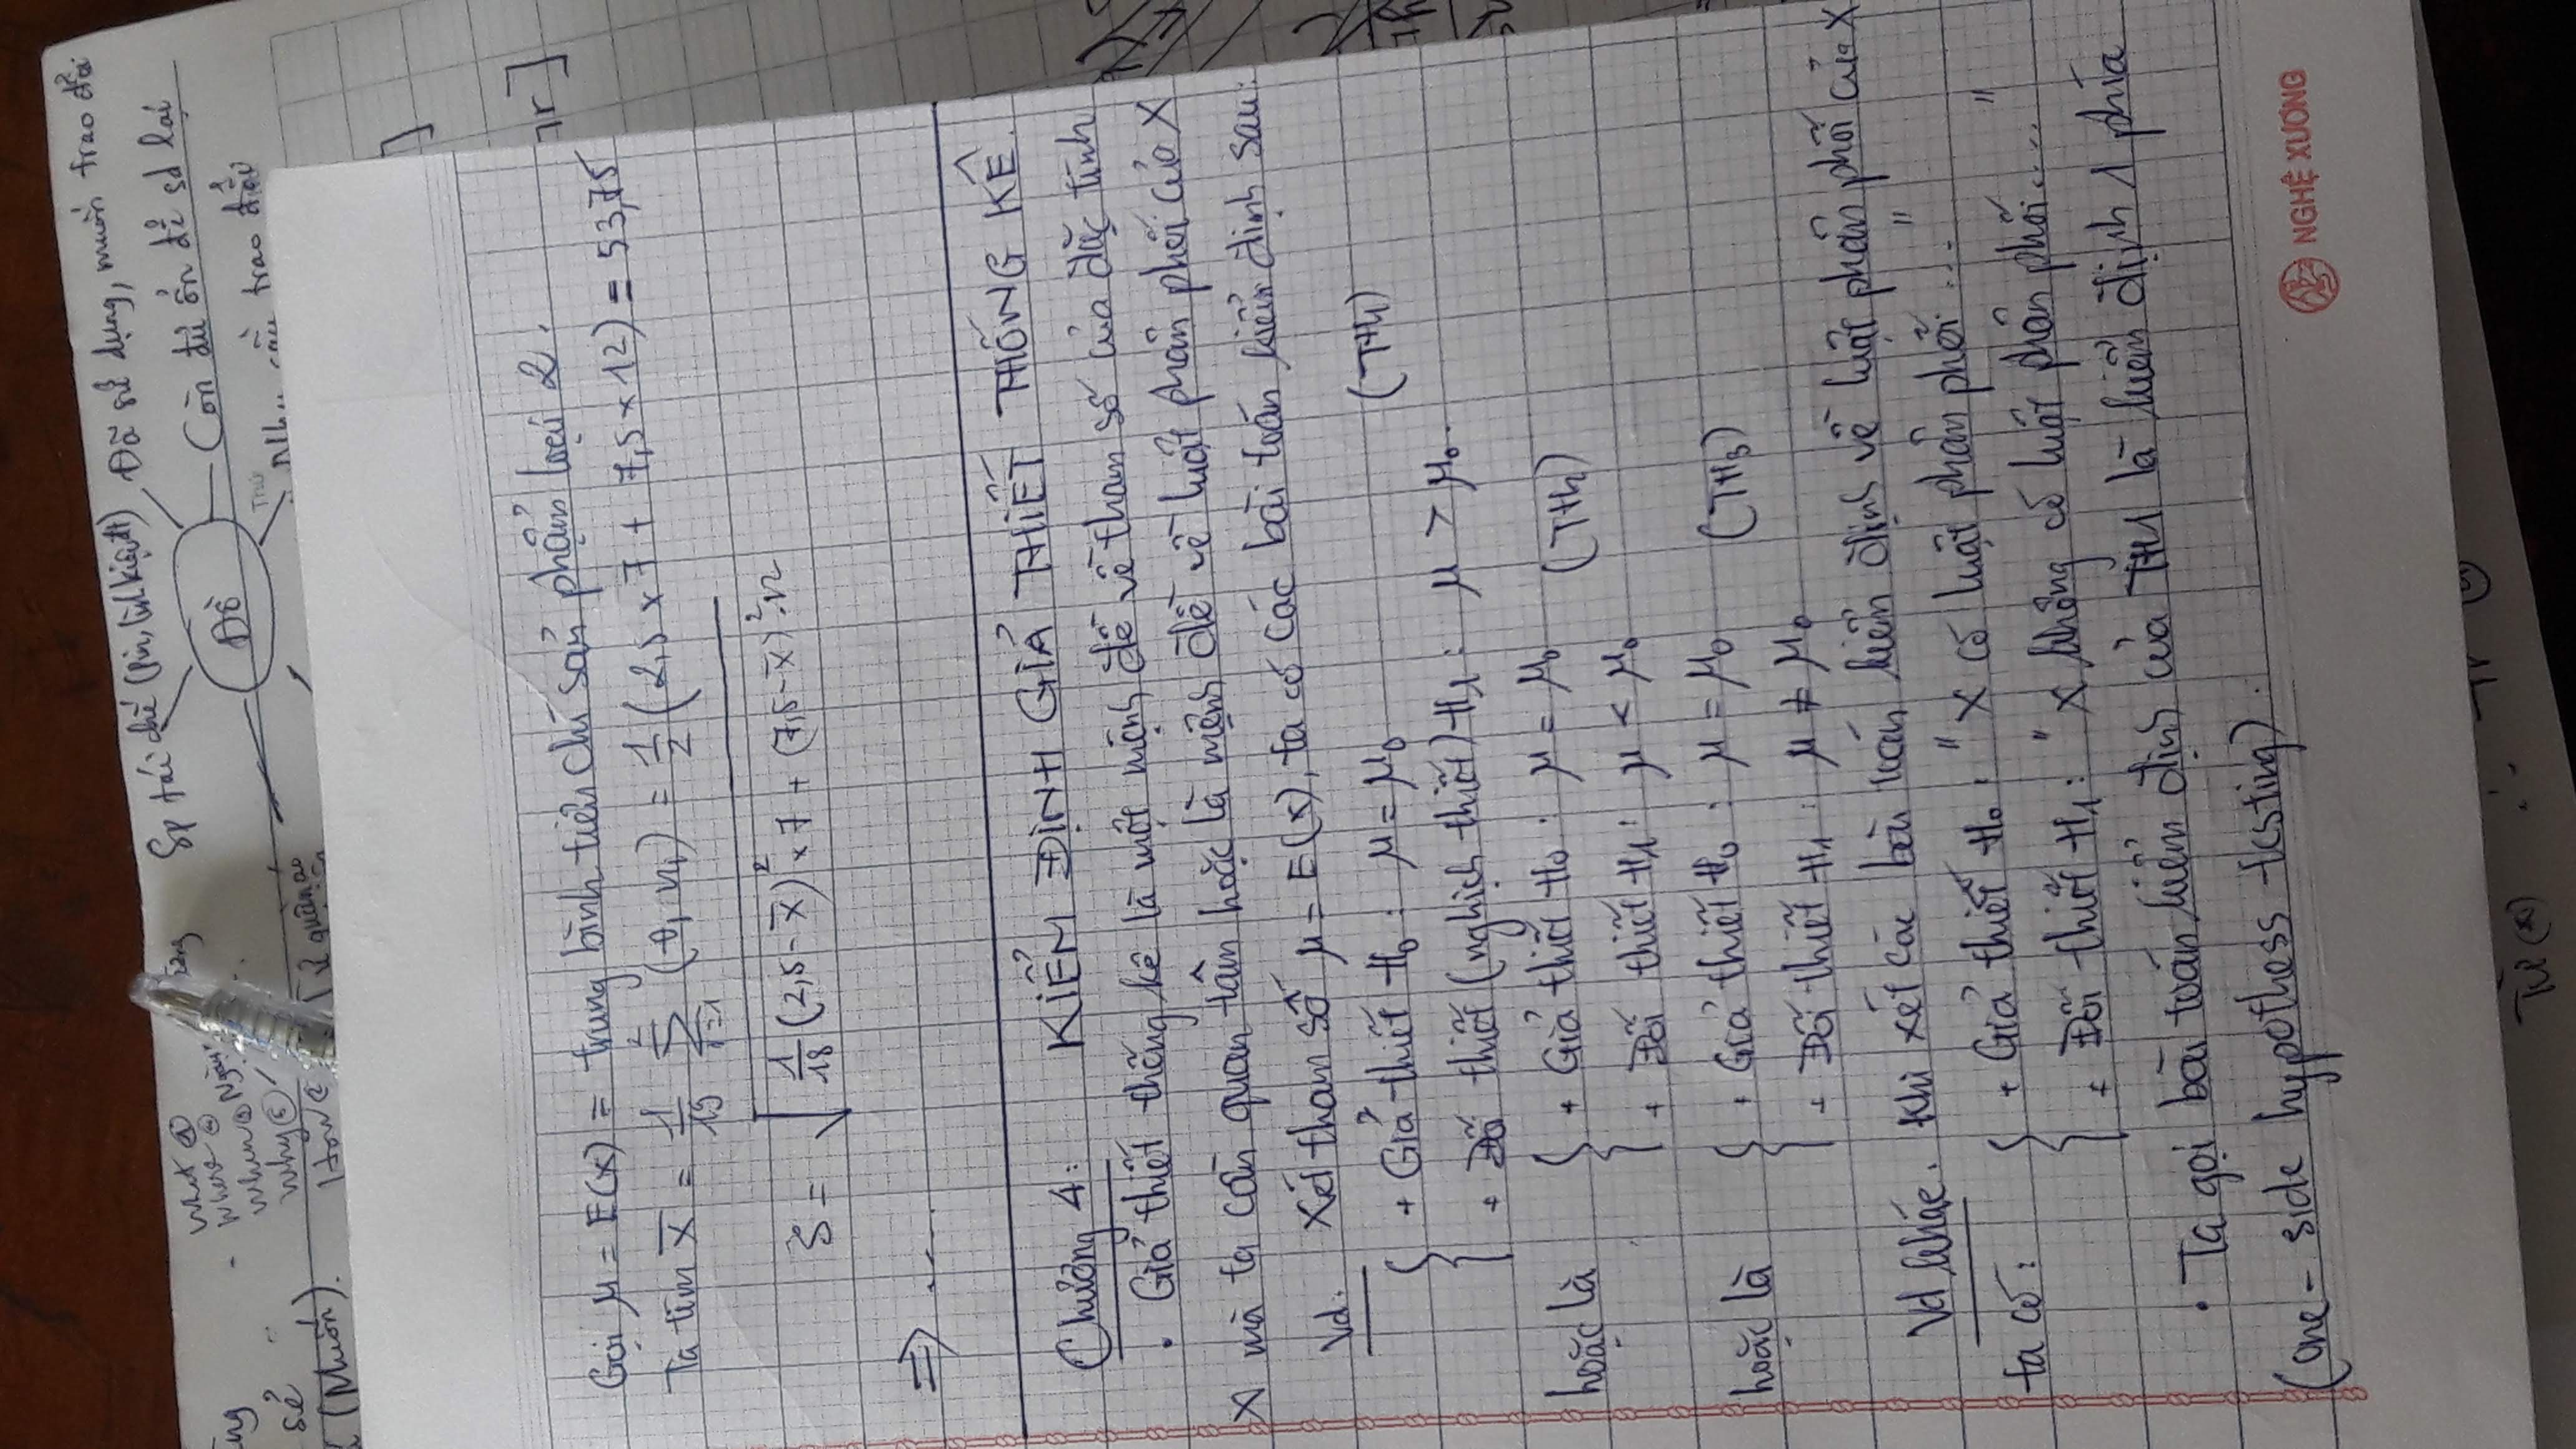 What ①
Where ④
When ③ Ngày
Why ⑤
How
Sp tái chế (Pin, linh kiện đt)
Đã sử dụng, muốn trao đổi
Đồ
Còn đủ ổn để sd lại
Nhu cầu trao đổi
sẻ
(Muốn).
Từ quần áo
Gọi μ = E(X) = trung bình tiêu chí sản phẩm loại 2.
Ta tìm X̄ = 1/19 Σ (θᵢ nᵢ) = 1/2 (2,5 × 7 + 7,5 × 12) = 53,75
S = √(1/18 (2,5 - X̄)² × 7 + (7,5 - X̄)² · 12
⇒ .....
Chương 4: KIỂM ĐỊNH GIẢ THIẾT THỐNG KÊ.
• Giả thiết thống kê là một mệnh đề về tham số của đặc tính
X mà ta cần quan tâm hoặc là mệnh đề về luật phân phối của X
Vd: Xét tham số μ = E(X), ta có các bài toán kiểm định sau:
+ Giả thiết H₀ : μ = μ₀ (TH1)
+ Đối thiết (nghịch thiết) H₁ : μ > μ₀.
hoặc là + Giả thiết H₀ : μ = μ₀ (TH2)
+ Đối thiết H₁ : μ < μ₀
hoặc là + Giả thiết H₀ : μ = μ₀ (TH3)
+ Đối thiết H₁ : μ ≠ μ₀
Vd khác. Khi xét các bài toán kiểm định về luật phân phối của X
ta có: + Giả thiết H₀ : "X có luật phân phối ..."
+ Đối thiết H₁ : "X không có luật phân phối....."
• Ta gọi bài toán kiểm định của TH1 là kiểm định 1 phía
(one - side hypothess testing).
NGHỆ XƯƠNG